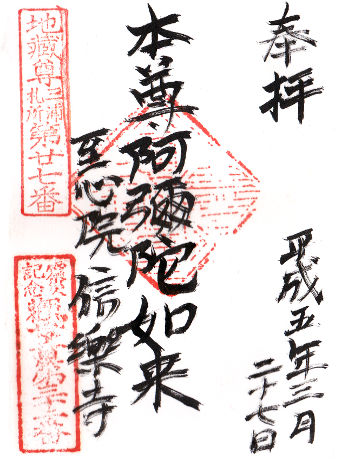 奉拝
平成五年三月
二十七日
本尊阿彌陀如来
至心院信樂寺
地蔵尊三浦札所第廿七番
記念